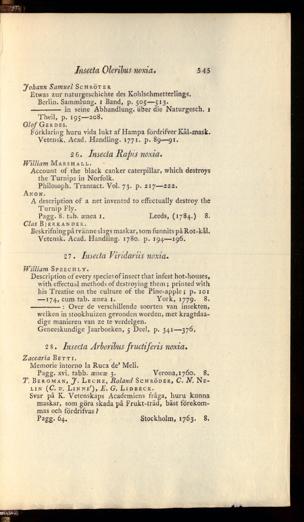 Insecta Oleribus noxia. 545
Johann Samuel SCHRÖTER
Etwas zur naturgeschichte des Kohlschmetterlings.
Berlin. Sammlung. 1 Band, p. 505—513.
——— in seine Abhandlung. über die Naturgesch. 1
Theil, p. 195—208.
Olof GERDES.
Förklaring huru vida lukt af Hampa fordrifver Kål-mask.
Vetensk. Acad. Handling. 1771. p. 89—91.
26. Insecta Rapis noxia.
William MARSHALL.
Account of the black canker caterpillar, which destroys
the Turnips in Norfolk.
Philosoph. Transact. Vol. 73. p. 217—222.
ANON.
A description of a net invented to effectually destroy the
Turnip Fly.
Pagg. 8. tab. ænea 1. Leeds, (1784.) 8.
Clas BJERKANDER.
Beskrifning på tvänne slags maskar, som funnits på Rot-kål.
Vetensk. Acad. Handling. 1780. p. 194—196.
27. Insecta Viridariis noxia.
William SPEECHLY.
Description of every species of insect that infest hot-houses,
with effectual methods of destroying them; printed with
his Treatise on the culture of the Pine-apple; p. 101
—174, cum tab. ænea 1. York, 1779. 8.
———: Over de verschillende soorten van insekten,
welken in stookhuizen gevonden worden, met kragtdaa-
dige manieren van ze te verdelgen.
Geneeskundige Jaarboeken, 5 Deel. p. 341—376.
28. Insecta Arboribus fructiferis noxia.
Zaccaria BETTI.
Memorie intorno la Ruca de' Meli.
Pagg. xvi. tabb. æneæ 3. Verona, 1760. 8.
T. BERGMAN, J. LECHE, Roland SCHRÖDER, C. N. NE-
LIN (C. v. LINNE'), E. G. LIDBECK.
Svar på K. Vetenskaps Academiens fråga, huru kunna
maskar, som göra skada på Frukt-träd, bäst förekom-
mas och fördrifvas?
Pagg. 64. Stockholm, 1763. 8.